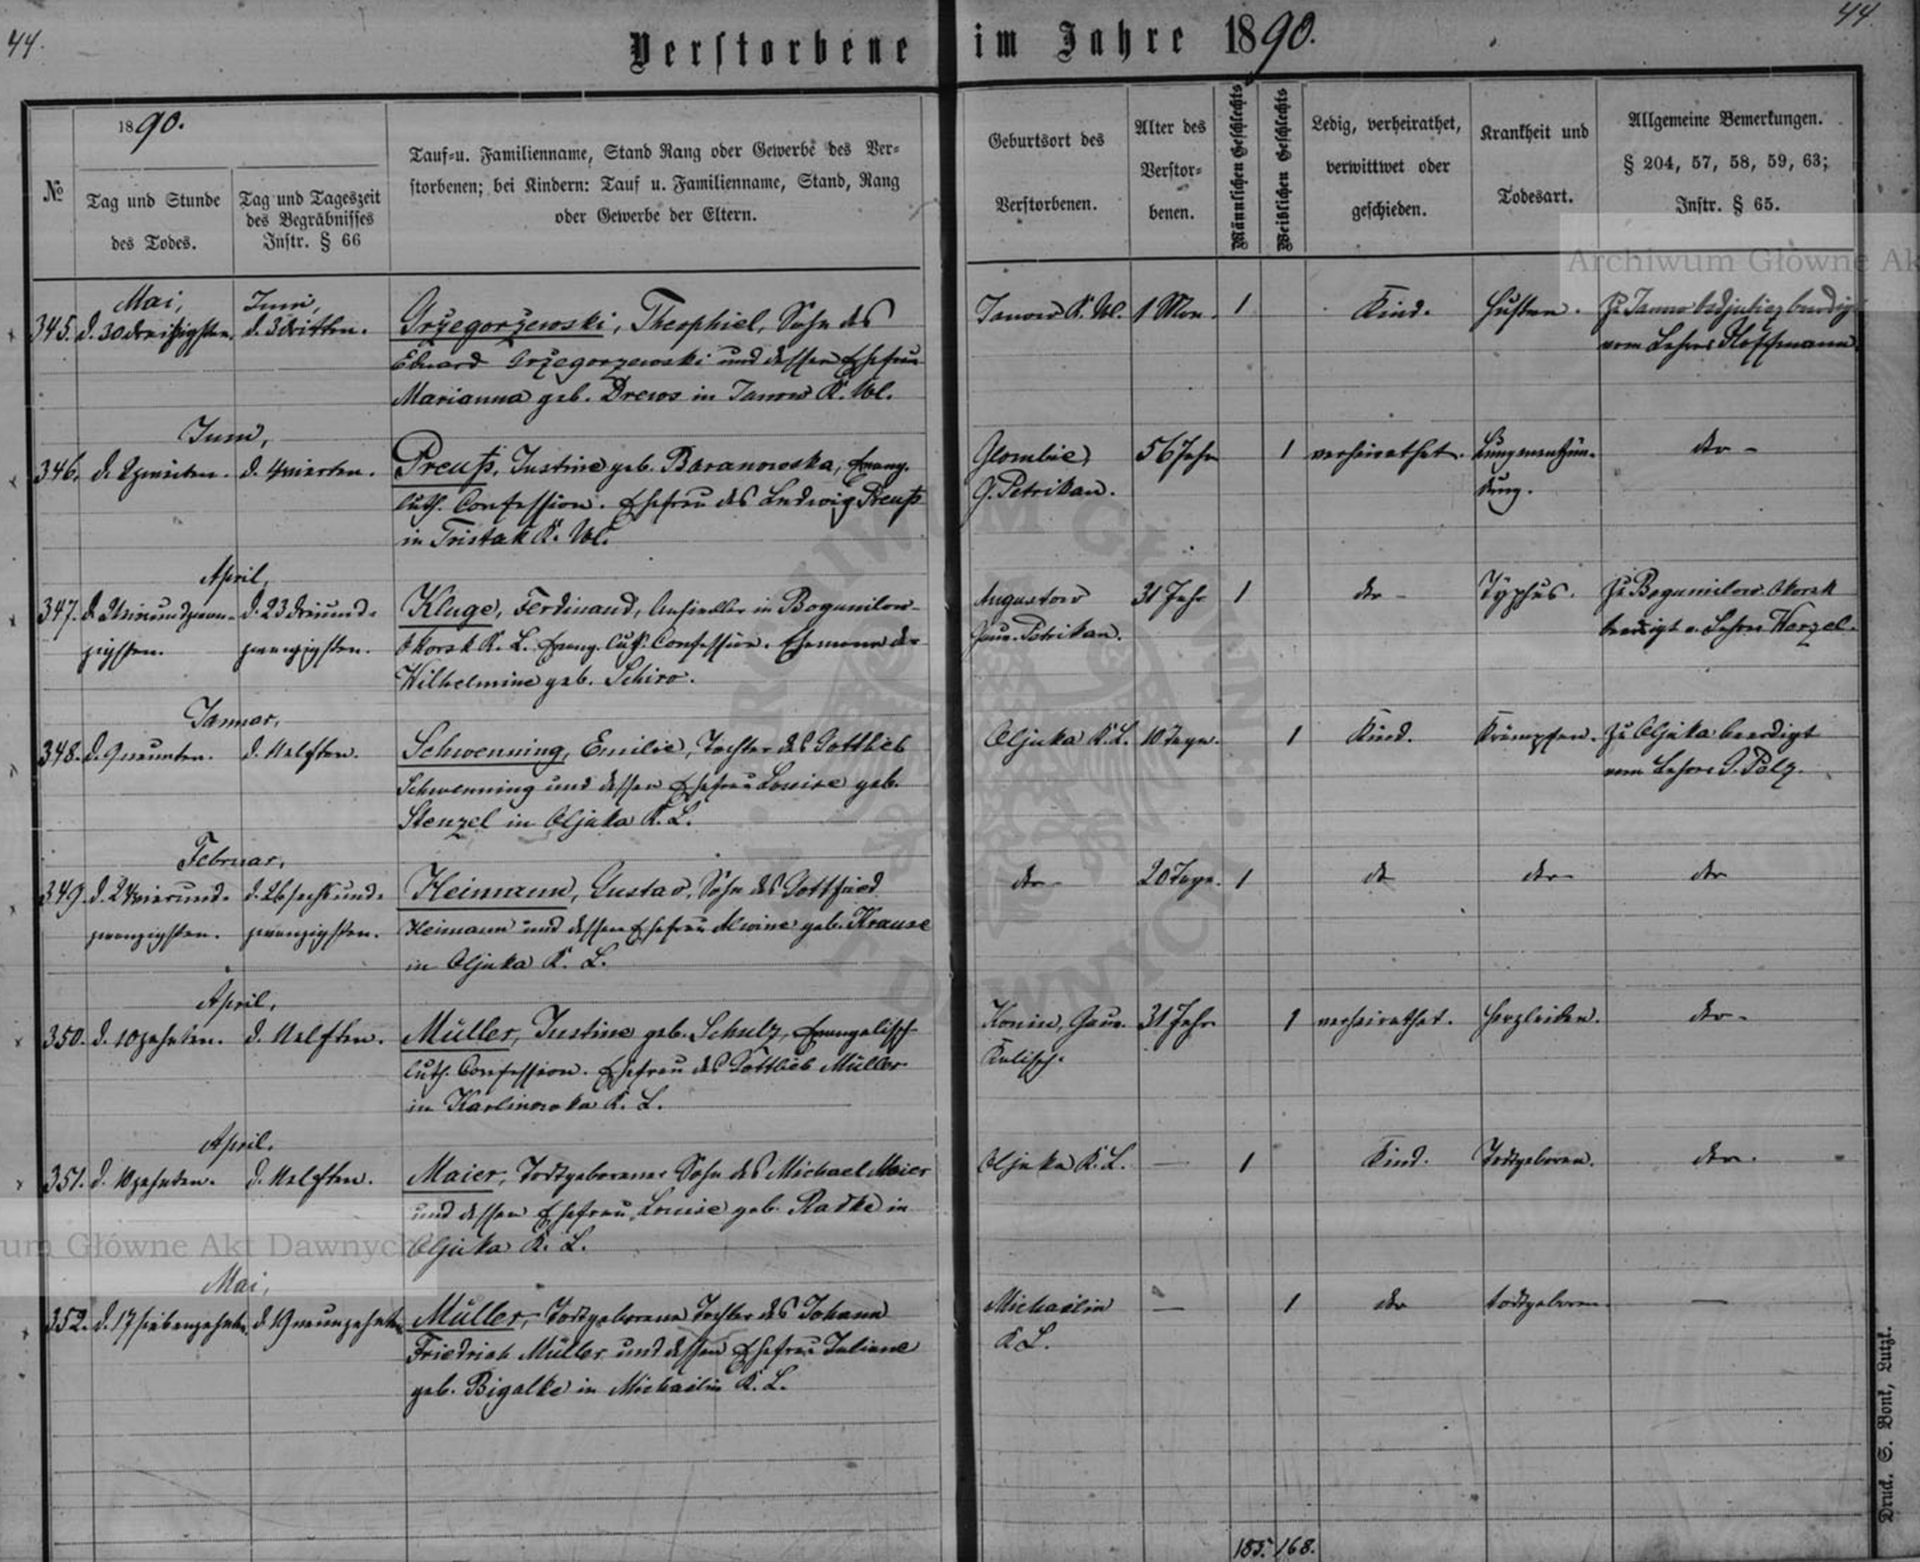 44.
Verstorbene im Jahre 1890.
44.
№
1890.
Tag und Stunde
des Todes.
Tag und Tageszeit
des Begräbnisses
Instr. § 66
Tauf=u. Familienname, Stand Rang oder Gewerbe des Ver=
storbenen; bei Kindern: Tauf u. Familienname, Stand, Rang
oder Gewerbe der Eltern.
Geburtsort des
Verstorbenen.
Alter des
Verstor=
benen.
Männlichen Geschlechts
Weiblichen Geschlechts
Ledig, verheirathet,
verwittwet oder
geschieden.
Krankheit und
Todesart.
Allgemeine Bemerkungen.
§ 204, 57, 58, 59, 63;
Instr. § 65.
Archiwum Główne Ak
Mai,
Juni,
345. d. 30 dreißigsten. d. 3 dritten. Grzegorzewski, Theophiel, Sohn des
Eduard Grzegorzewski und dessen Ehefrau
Marianna geb. Drews in Janow K. Wl.
Janow K. Wl. 1 Mon. 1 Kind. Husten. Zu Janow
vom Lehrer Hoffmann
Juni,
346. d. 2 zweiten. d. 4 vierten. Preuß, Justine geb. Baranowska, Evang.
luth. Confession. Ehefrau des Ludwig Preuß
in Tristak K. Wl.
Glombie,
G. Petrikau.
56 Jahr 1 verheirathet. Lungenentzün-
dung.
dto -
April,
347. d. 21 einundzwan-
zigsten.
d. 23 dreiund-
zwanzigsten.
Kluge, Ferdinand, Ansiedler in Bogumilow-
Okorsk K. L. Evang. luth. Confession. Ehemann der
Wilhelmine geb. Schiro.
Augustow
Gouv. Petrikau.
31 Jahr 1 dto - Typhus. Zu Bogumilow Okorsk
beerdigt v. Lehrer Herzel.
Januar,
348. d. 9 neunten. d. 11 elften. Schwenning, Emilie, Tochter des Gottlieb
Schwenning und dessen Ehefrau Louise geb.
Stenzel in Oljuka K. L.
Oljuka K. L. 10 Tage. 1 Kind. Krämpfen. Zu Oljuka beerdigt
vom Lehrer G. Pelz.
Februar,
349. d. 24 vierund-
zwanzigsten.
d. 26 sechsund-
zwanzigsten.
Heimann, Gustav, Sohn des Gottfried
Heimann und dessen Ehefrau Alwine geb. Krause
in Oljuka K. L.
dto 20 Tage. 1 dto dto dto
April,
350. d. 10 zehnten. d. 11 elften. Müller, Justine geb. Schulz, Evangelisch
luth. Confession. Ehefrau des Gottlieb Müller
in Karlinowka K. L.
Konin, Gouv.
Kalisch.
31 Jahr 1 verheirathet. Herzleiden. dto -
April.
351. d. 10 zehnten. d. 11 elften. Maier, Todtgeborener Sohn des Michael Maier
und dessen Ehefrau Louise geb. Radke in
Oljuka K. L.
Oljuka K. L. — 1 Kind. Todtgeboren. dto.
um Główne Akt Dawnych
Mai,
352. d. 17 siebenzehnten. d. 19 neunzehnten Müller, Todtgeborene Tochter des Johann
Friedrich Müller und dessen Ehefrau Juliane
geb. Bigalke in Michailin K. L.
Michailin
K L.
— 1 dto todtgeboren. —
185. 168.
Druck. S. Bonk, Lutzk.